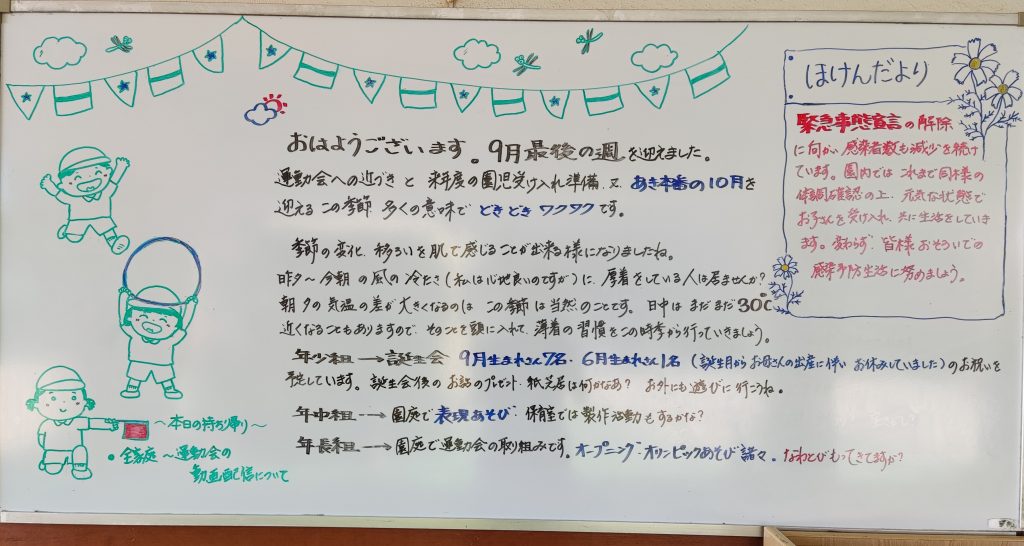 おはようございます。9月最後の週を迎えました。
運動会への近づきと 来年度の園児受け入れ準備、又、あき本番の10月を
迎えるこの季節、多くの意味で どきどき ワクワクです。
季節の変化、移ろいを肌で感じることが出来る様になりましたね。
昨夕～今朝の風の冷たさ(私は心地良いのですが)に、厚着をしている人は居ませんか?
朝夕の気温の差が大きくなるのは この季節は当然のことです。日中はまだまだ30℃
近くなることもありますので、そのことを頭に入れて、薄着の習慣をこの時季から行っていきましょう。
年少組→誕生会 9月生まれさん7名・6月生まれさん1名(誕生月からお母さんの出産に伴い お休みしていました)のお祝いを
予定しています。誕生会後のお話のプレゼント・紙芝居は何かなあ? お外にも遊びに行こうね。
年中組→園庭で表現あそび・保育室では製作活動もするかな?
年長組→園庭で運動会の取り組みです。オープニング・オリンピックあそび諸々。なわとびもってきてますか?
ほけんだより
緊急事態宣言の解除
に向かい感染者数も減少を続け
ています。園内ではこれまで同様の
体調確認の上、元気な状態で
お子さんを受け入れ、共に生活をしていき
ます。変わらず、皆様おそろいでの
感染予防生活に努めましょう。
～本日の持ち帰り～
・全家庭～運動会の
動画配信について